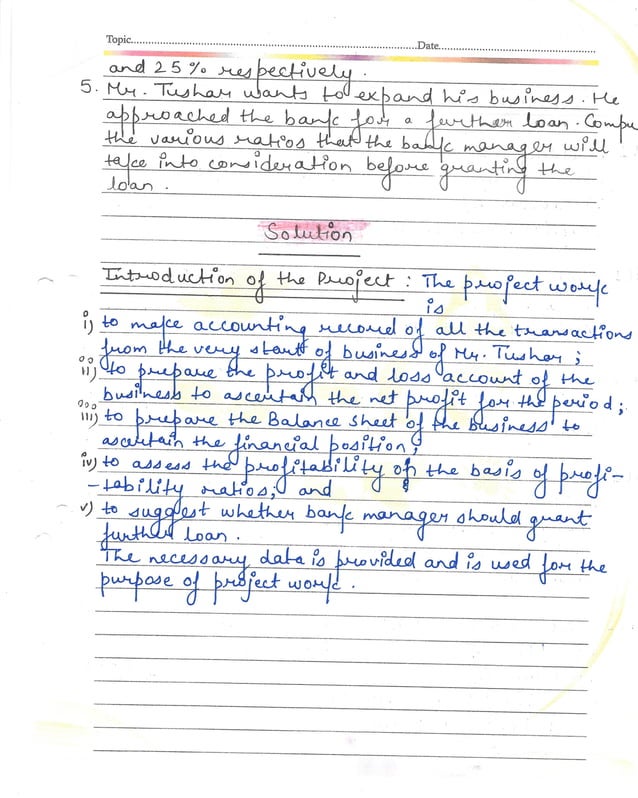 Topic..........Date..........
and 25% respectively.
5. Mr. Tushar wants to expand his business. He
approached the bank for a further loan. Compu
the various ratios that the bank manager will
take into consideration before granting the
loan.
Solution
Introduction of the Project : The project work
is
i) to make accounting record of all the transactions
from the very start of business of Mr. Tushar;
ii) to prepare the profit and loss account of the
business to ascertain the net profit for the period;
iii) to prepare the Balance Sheet of the business to
ascertain the financial position;
iv) to assess the profitability on the basis of profi-
-tability ratios; and
v) to suggest whether bank manager should grant
further loan.
The necessary data is provided and is used for the
purpose of project work.